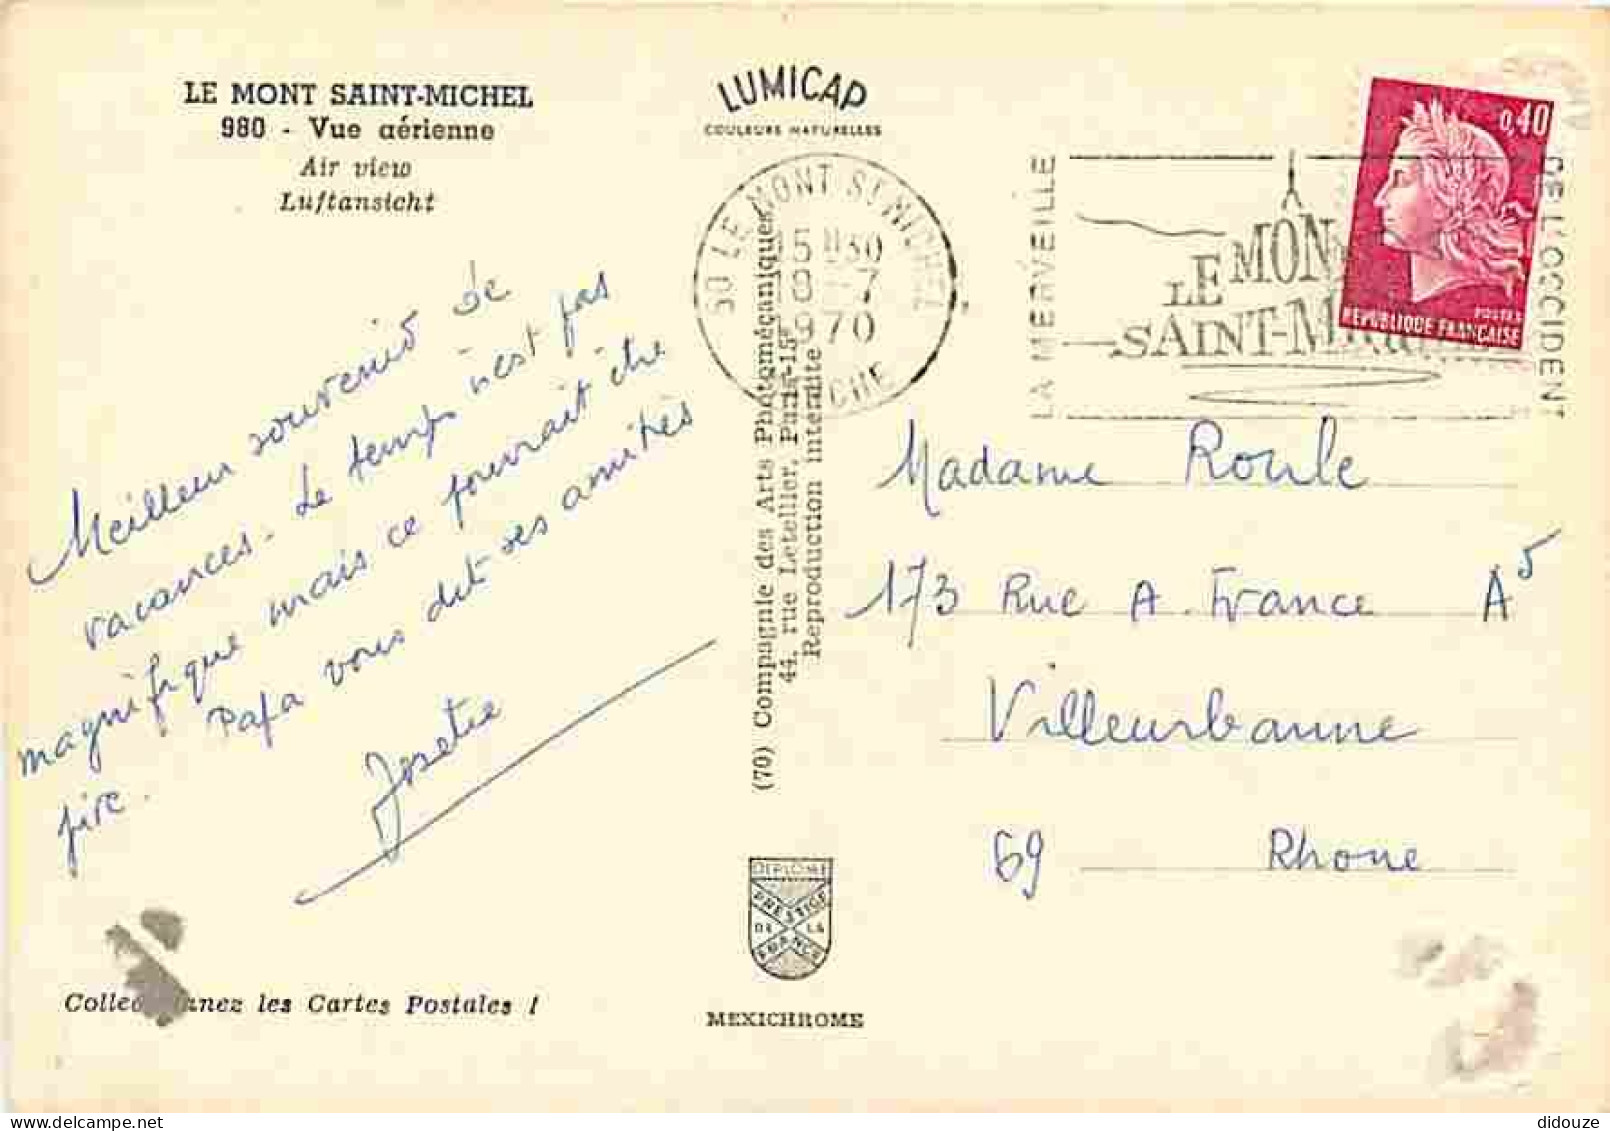 LE MONT SAINT-MICHEL
980 - Vue aérienne
Air view
Luftansicht
Meilleur souvenir de
vacances. Le temps n'est pas
magnifique mais ce pourrait être
pire. Papa vous dit ses amitiés
Josette
Collectionnez les Cartes Postales !
LUMICAP
COULEURS NATURELLES
50 LE MONT ST MICHEL
15 H30
8 -7
1970
MANCHE
(70) Compagnie des Arts Photomécaniques
44, rue Letellier, Paris-15e
Reproduction interdite
DIPLOME
PRESTIGE
DE LA
FRANCE
MEXICHROME
LA MERVEILLE
LE MONT
SAINT-MICHEL
DE L'OCCIDENT
0,40
POSTES
REPUBLIQUE FRANÇAISE
Madame Roule
173 Rue A. France A5
Villeurbanne
69 Rhone
didouze